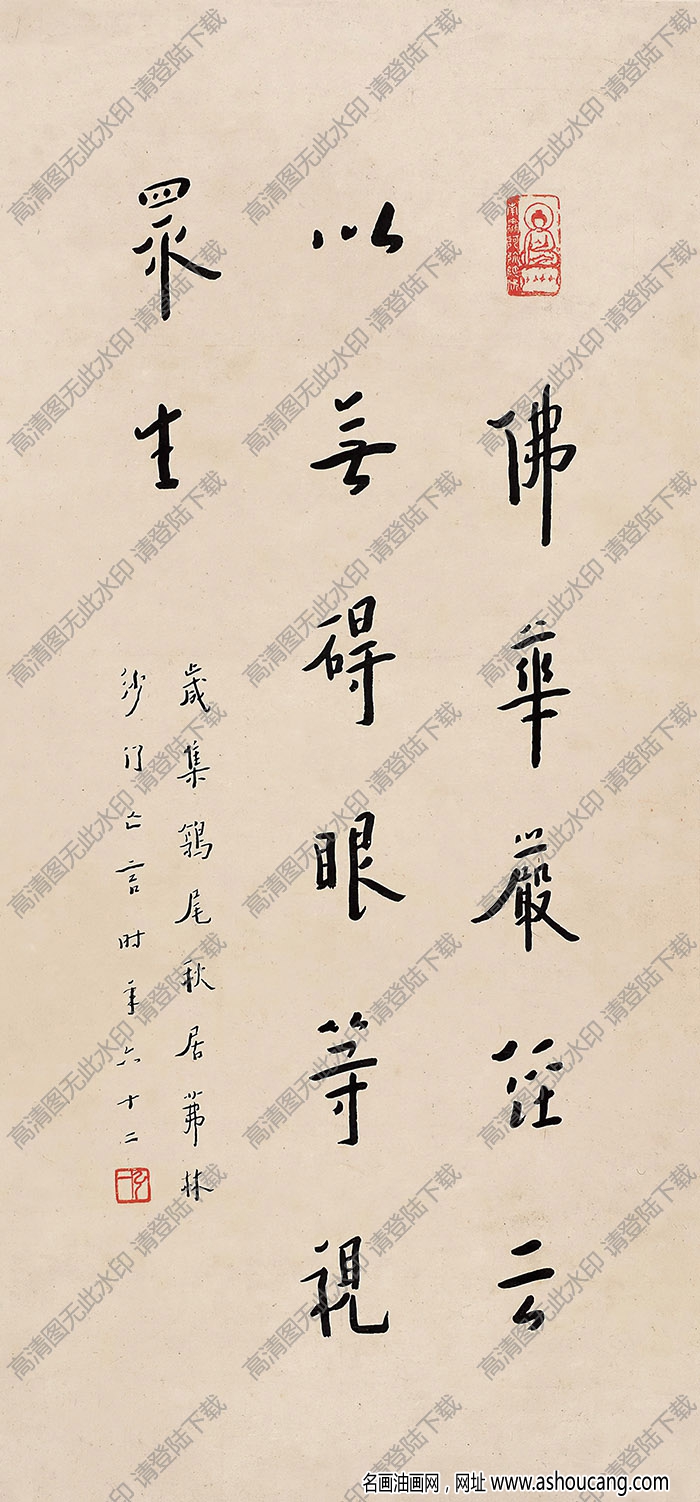 佛華嚴經云
以無碍眼等視
眾生
歲集鶉尾秋居茀林
沙門亡言时年六十二
高清图无此水印 请登陆下载
名画油画网，网址 www.ashoucang.com